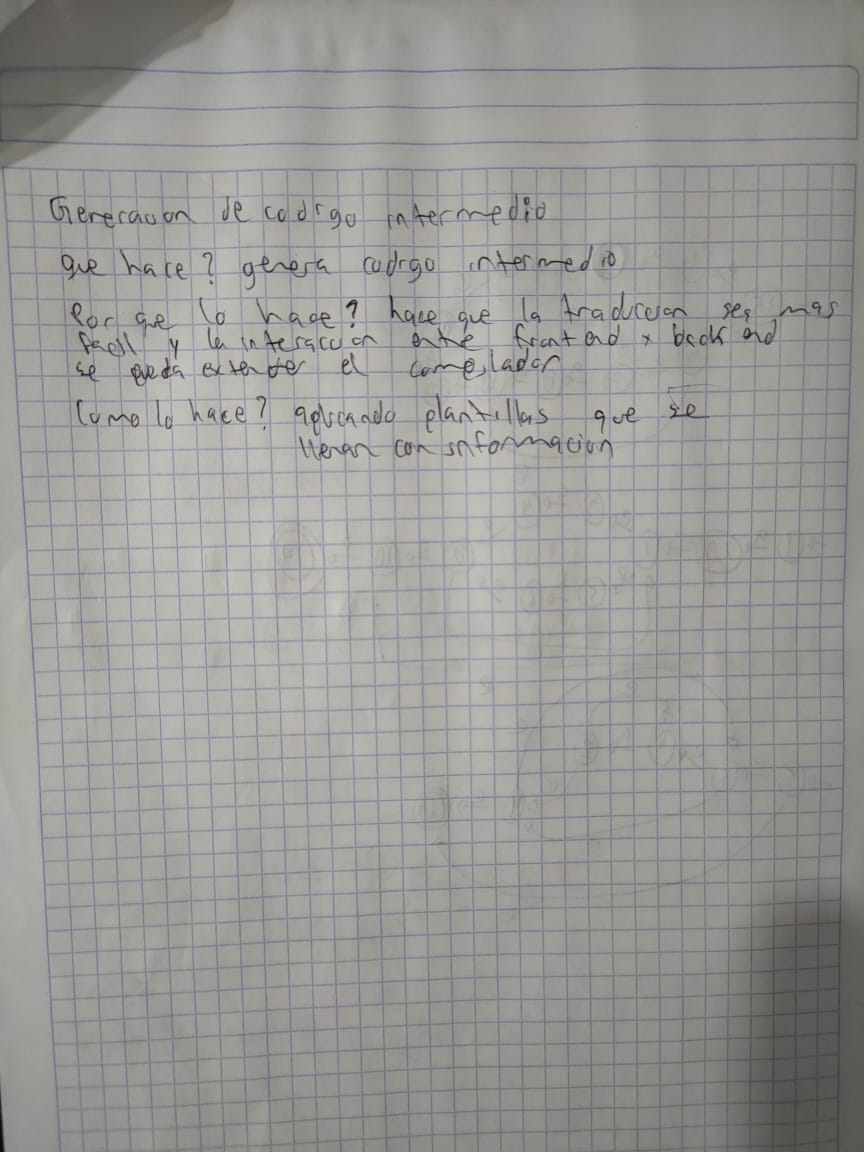 Generacion de codigo intermedio
que hace? genera codigo intermedio
Por que lo hace? hace que la traduccion sea mas
facil y la interaccion entre front end x back end
se pueda extender el compilador
Como lo hace? aplicando plantillas que se
llenan con informacion